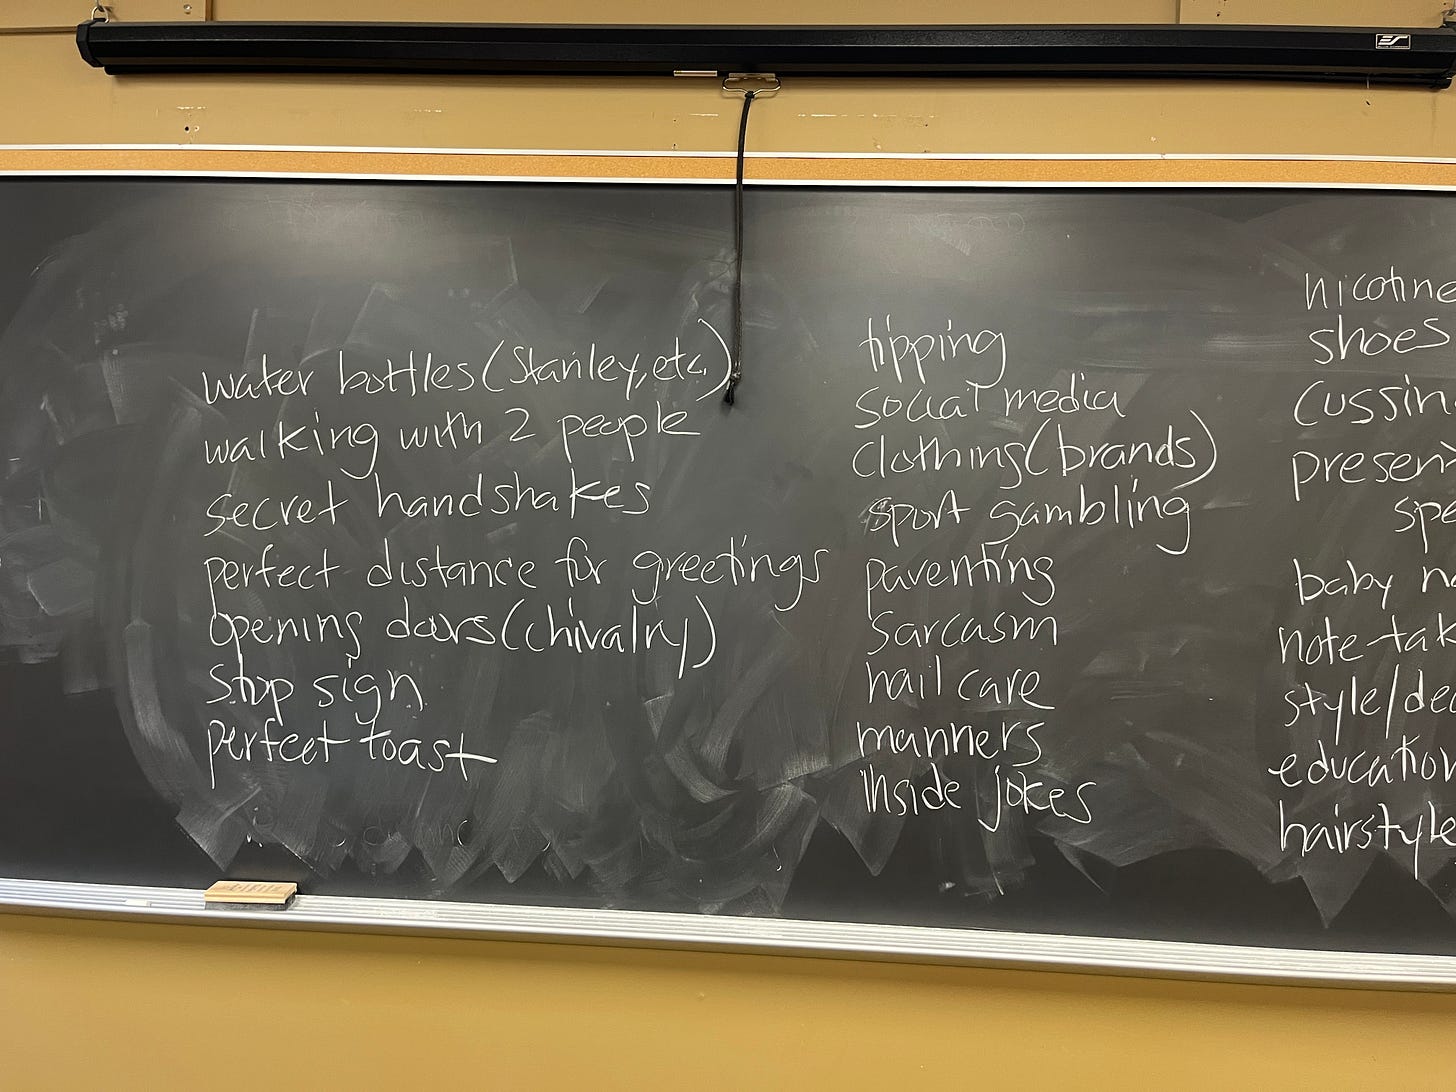 water bottles (Stanley, etc.)
walking with 2 people
secret handshakes
perfect distance for greetings
opening doors (chivalry)
stop sign
perfect toast
tipping
social media
clothing (brands)
sport gambling
parenting
sarcasm
nail care
manners
inside jokes
nicotine
shoes
cussin
presen
spe
baby n
note-tak
style/dec
education
hairstyle
ES